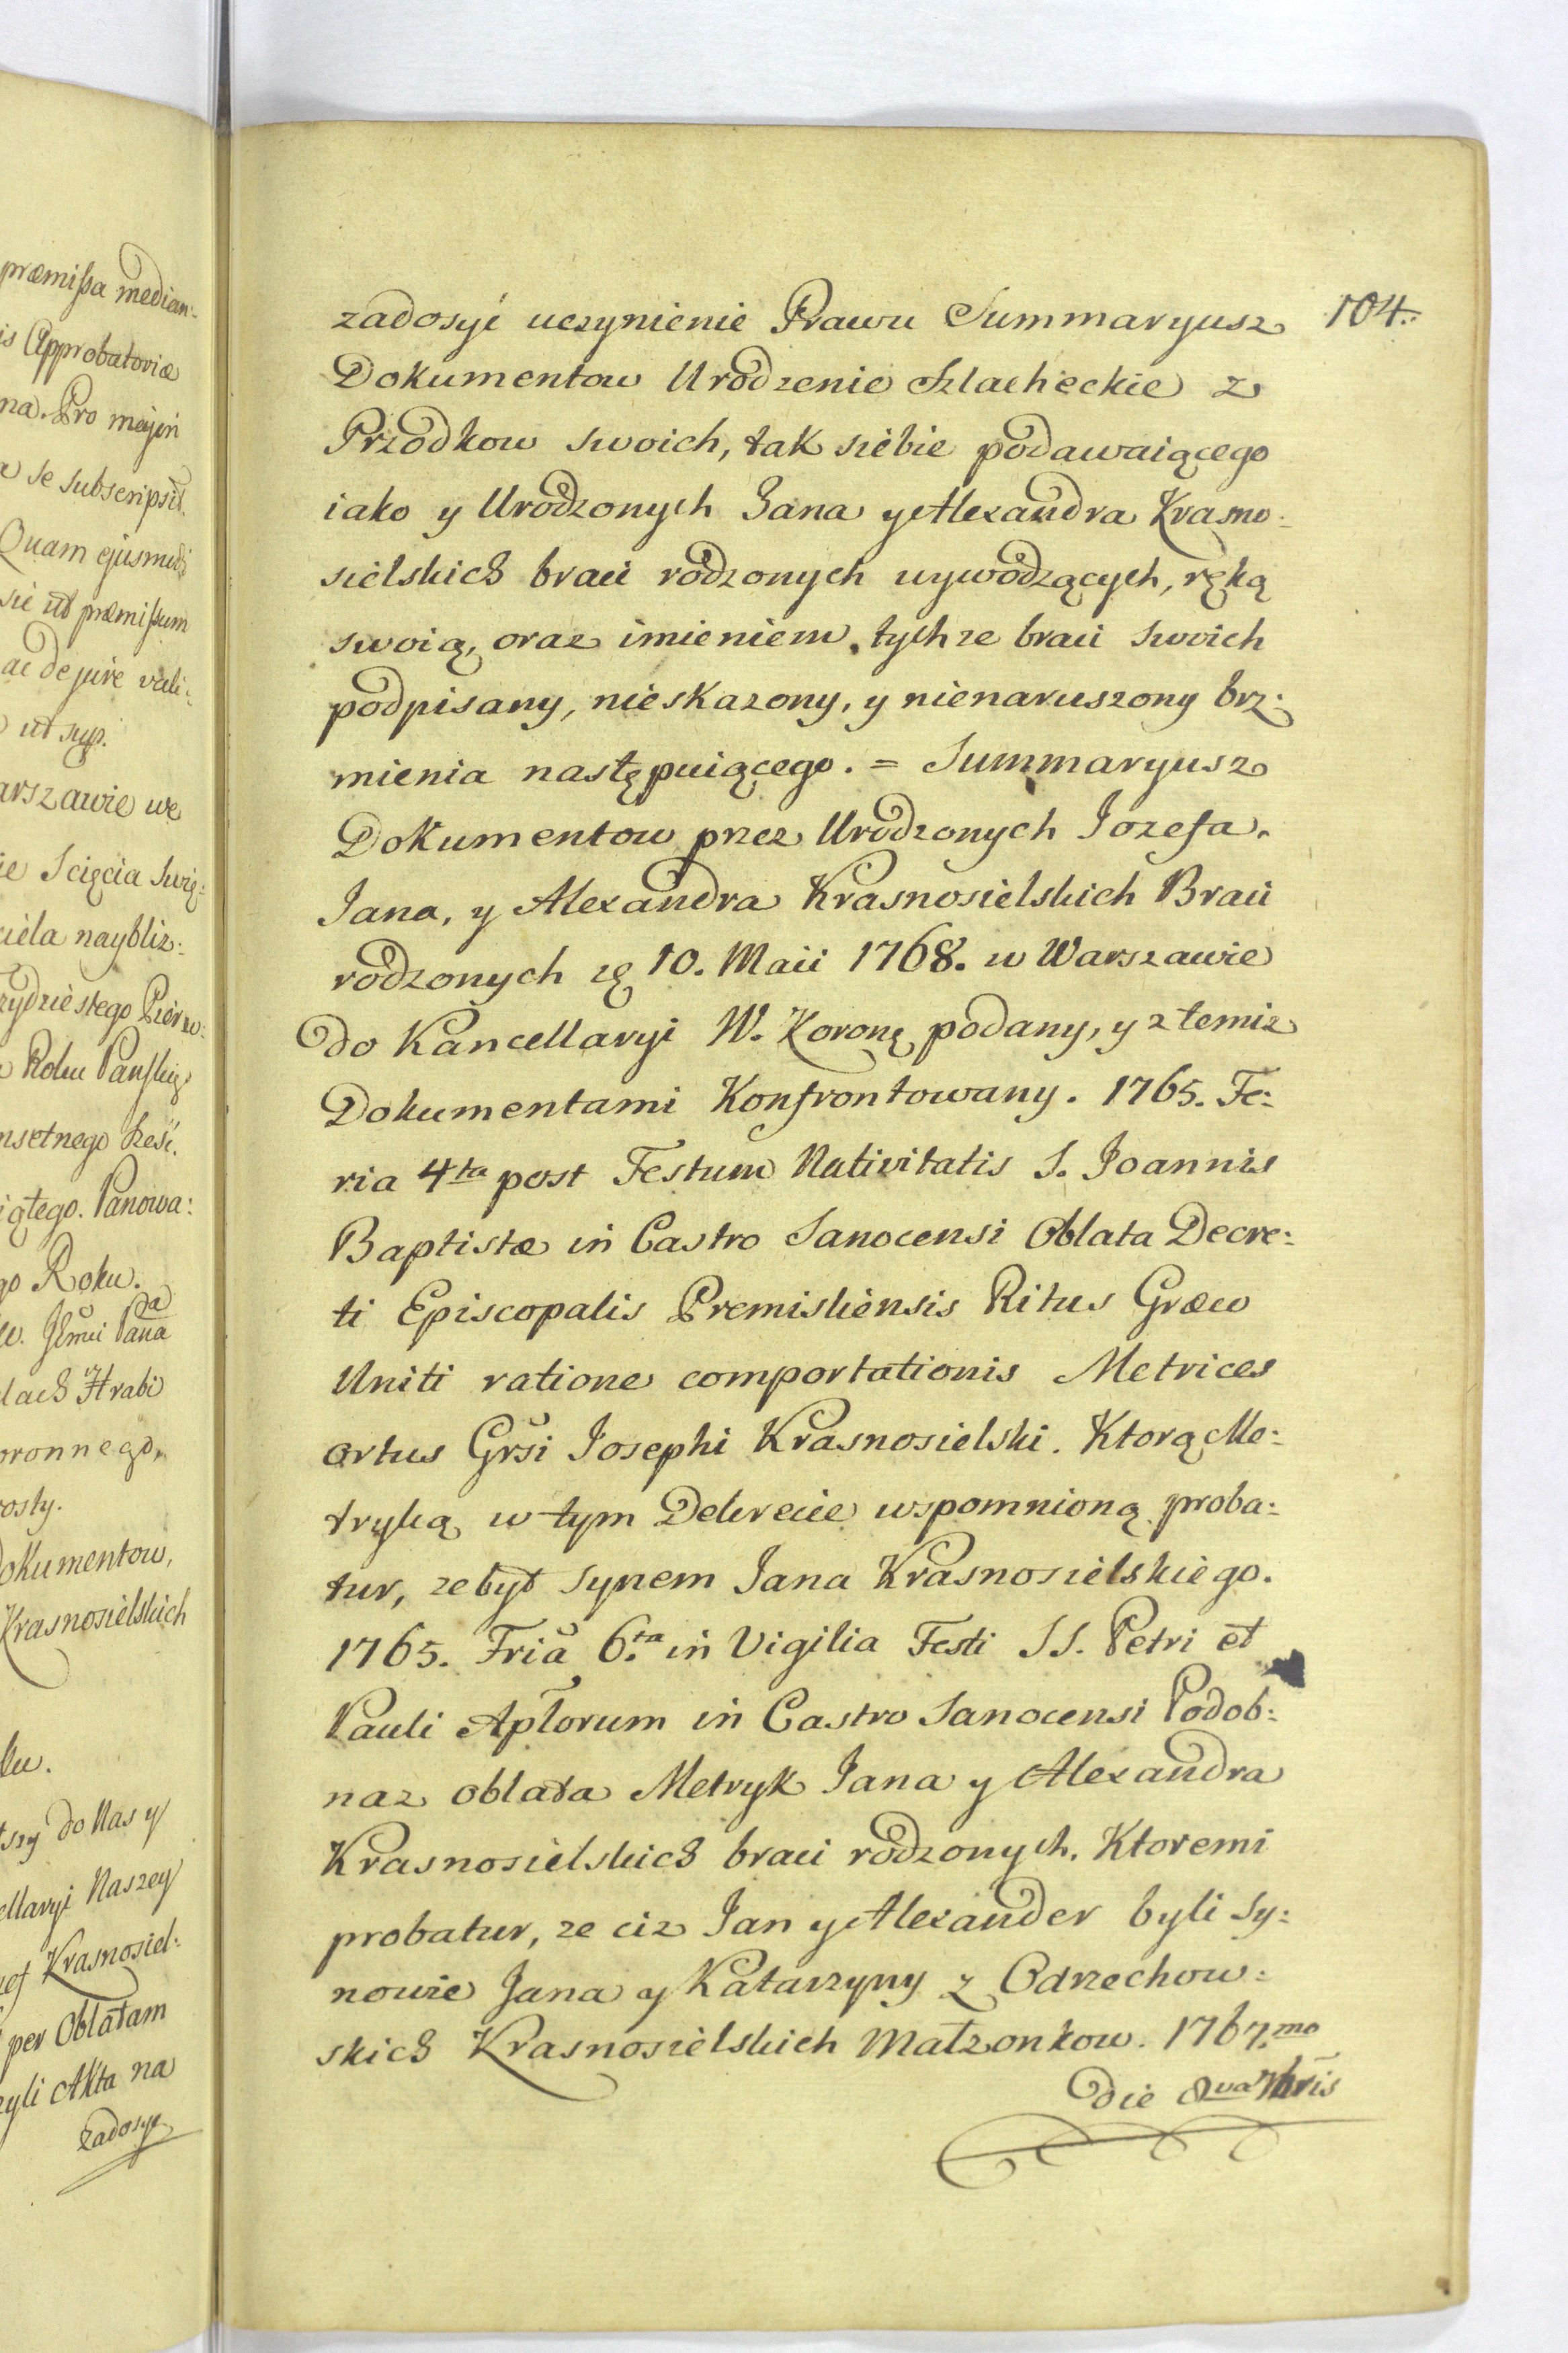 præmissa median:
is Approbatoriæ
na. Pro majori
se subscripsit.
Quam ejusmodi
sic ut præmissum
ac de jure vali:
ut sup.
arszawie we
ie Scięcia Swię:
ciela naybliz:
rzydziestego Pierw:
Roku Panskieg
nsetnego szesc.
iątego. Panowa:
go Roku.
Jsmci Pana
lach Hrabi
oronnego,
osty.
Dokumentow,
Krasnosielskich
ku.
tszy do Nas y
ellaryi Naszey
zef Krasnosiel:
per Oblatam
zyli Akta na
zadosyc
104.
zadosyć uczynienie Prawu Summaryusz
Dokumentow Urodzenie Szlacheckie z
Przodkow swoich, tak siebie podawaiącego
iako y Urodzonych Jana y Alexandra Krasno:
sielskich braci rodzonych wywodzących, ręką
swoią, oraz imieniem tychze braci swoich
podpisany, nieskazony, y nienaruszony brz:
mienia następuiącego. = Summaryusz
Dokumentow przez Urodzonych Jozefa,
Jana, y Alexandra Krasnosielskich Braci
rodzonych zę 10. Maii 1768. w Warszawie
do Kancellaryi W. Koronę podany, y z temiz
Dokumentami Konfrontowany. 1765. Fe:
ria 4ta post Festum Nativitatis S. Joannis
Baptistæ in Castro Sanocensi Oblata Decre:
ti Episcopalis Premisliensis Ritus Græco
Uniti ratione comportationis Metrices
ortus Grsi Josephi Krasnosielski. Ktorą Me:
tryką w tym Dekrecie wspomnioną proba:
tur, ze był synem Jana Krasnosielskiego.
1765. Fria 6.ta in Vigilia Festi SS. Petri et
Pauli Aplorum in Castro Sanocensi Podob:
naz oblata Metryk Jana y Alexandra
Krasnosielskich braci rodzonych. Ktoremi
probatur, ze ciz Jan y Alexander byli Sy:
nowie Jana y Katarzyny z Odrzechow:
skich Krasnosielskich Małzonkow. 1767.mo
die 8va 7bris